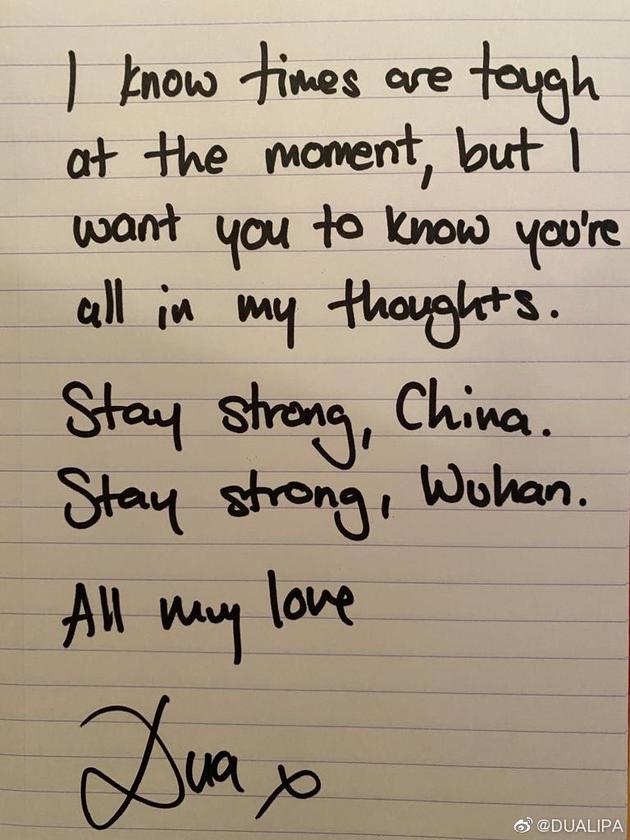 I know times are tough
at the moment, but I
want you to know you're
all in my thoughts.
Stay strong, China.
Stay strong, Wuhan.
All my love
Dua x
@DUALIPA